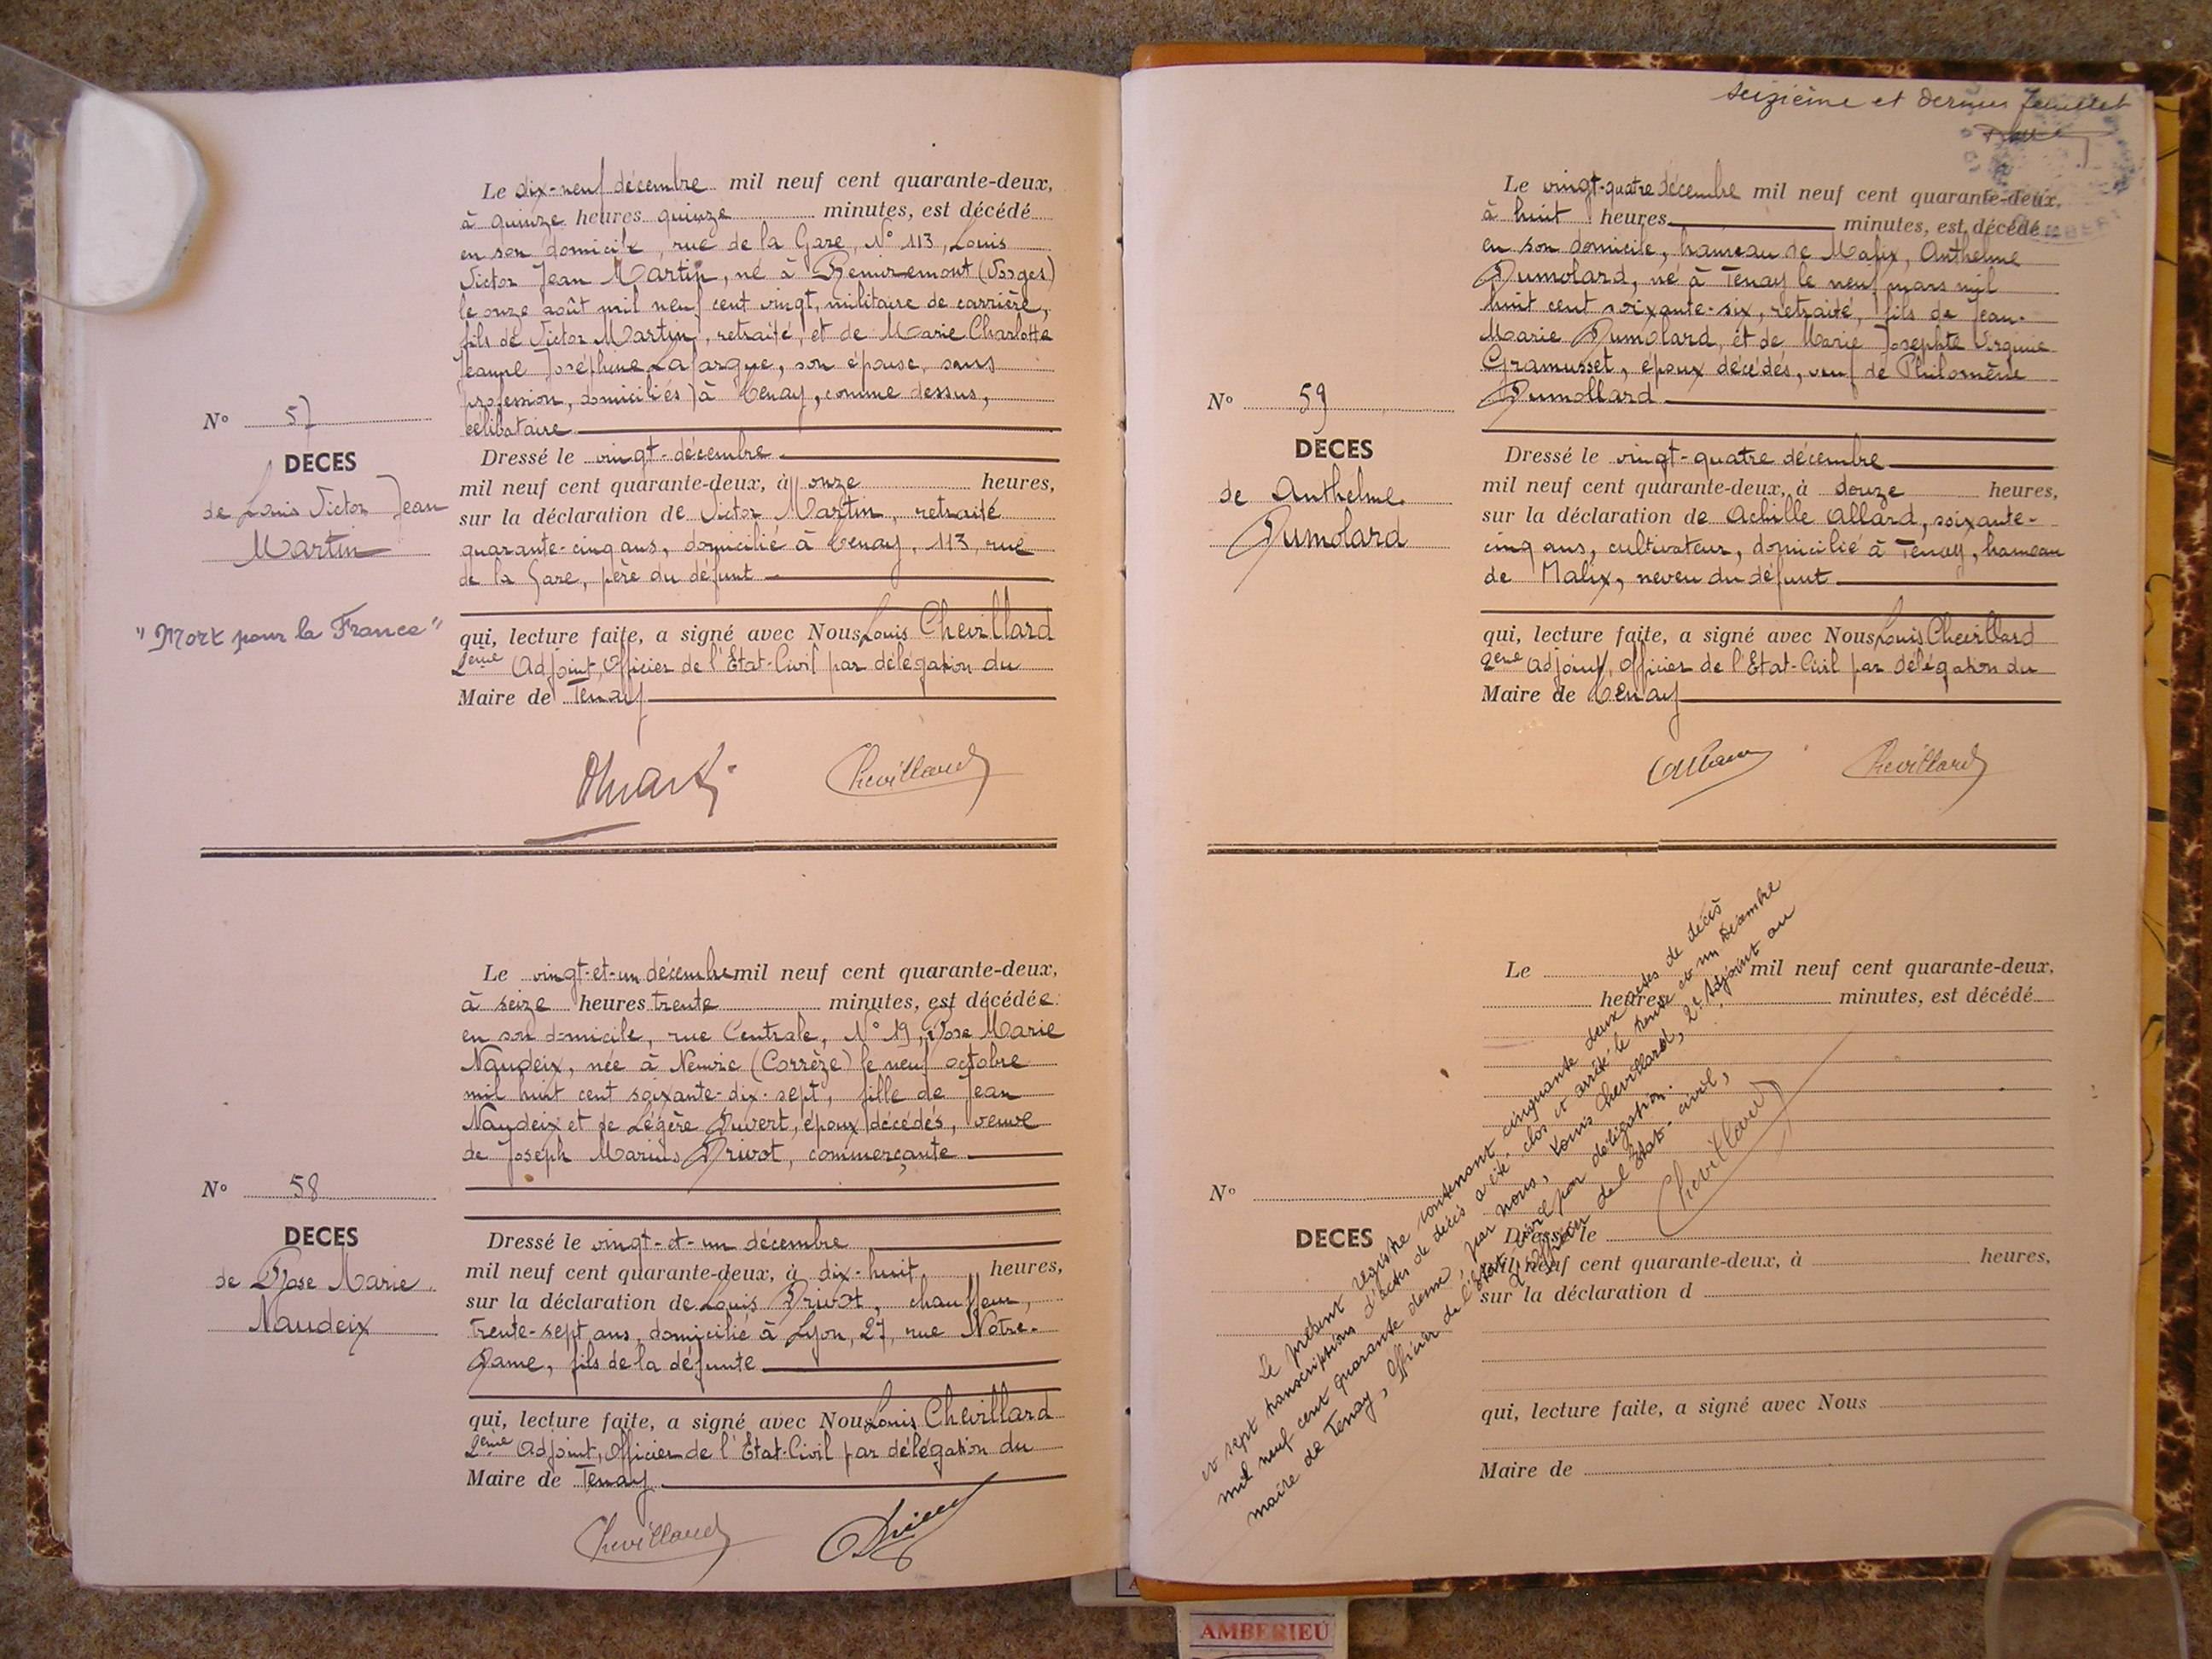 Le dix-neuf décembre mil neuf cent quarante-deux,
à quinze heures quinze minutes, est décédé
en son domicile, rue de la Gare, N° 113, Louis
Victor Jean Martin, né à Remiremont (Vosges)
le onze août mil neuf cent vingt, militaire de carrière,
fils de Victor Martin, retraité, et de Marie Charlotte
Jeanne Joséphine Lafargue, son épouse, sans
profession, domiciliés à Tenay, comme dessus,
célibataire
N° 57
DECES
de Louis Victor Jean
Martin
"Mort pour la France"
Dressé le vingt-décembre
mil neuf cent quarante-deux, à onze heures,
sur la déclaration de Victor Martin, retraité
quarante-cinq ans, domicilié à Tenay, 113, rue
de la Gare, père du défunt
qui, lecture faite, a signé avec Nous Louis Chevillard
2ème Adjoint, Officier de l'Etat-Civil par délégation du
Maire de Tenay
Chevillard
Le vingt-et-un décembre mil neuf cent quarante-deux,
à seize heures trente minutes, est décédée
en son domicile, rue Centrale, N° 19, Rose Marie
Naudeix, née à Neuvic (Corrèze) le neuf octobre
mil huit cent soixante-dix-sept, fille de Jean
Naudeix et de Légère Duvert, époux décédés, veuve
de Joseph Marius Drivot, commerçante
N° 58
DECES
de Rose Marie
Naudeix
Dressé le vingt-et-un décembre
mil neuf cent quarante-deux, à dix-huit heures,
sur la déclaration de Louis Drivot, chauffeur,
trente-sept ans, domicilié à Lyon, 27, rue Notre-
Dame, fils de la défunte
qui, lecture faite, a signé avec Nous Louis Chevillard
2ème Adjoint, Officier de l'Etat-Civil par délégation du
Maire de Tenay
Chevillard
seizième et dernier feuillet
Le vingt-quatre décembre mil neuf cent quarante-deux,
à huit heures minutes, est décédé
en son domicile, hameau de Malix, Anthelme
Dumolard, né à Tenay le neuf mars mil
huit cent soixante-six, retraité, fils de Jean-
Marie Dumolard, et de Marie Josephte Virginie
Gramusset, époux décédés, veuf de Philomène
Dumollard
N° 59
DECES
de Anthelme
Dumolard
Dressé le vingt-quatre décembre
mil neuf cent quarante-deux, à douze heures,
sur la déclaration de Achille Allard, soixante-
cinq ans, cultivateur, domicilié à Tenay, hameau
de Malix, neveu du défunt
qui, lecture faite, a signé avec Nous Louis Chevillard
2ème adjoint, Officier de l'Etat-Civil par délégation du
Maire de Tenay
Chevillard
Le mil neuf cent quarante-deux,
heures minutes, est décédé
N°
DECES
Dressé le
mil neuf cent quarante-deux, à heures,
sur la déclaration d
qui, lecture faite, a signé avec Nous
Maire de
Le présent registre contenant cinquante deux actes de décès
et sept transcriptions d'actes de décès a été clos et arrêté le trente et un décembre
mil neuf cent quarante deux, par nous, Louis Chevillard, 2e Adjoint au
maire de Tenay, Officier de l'Etat-civil par délégation.
L'officier de l'Etat-civil,
Chevillard
AMBERIEU